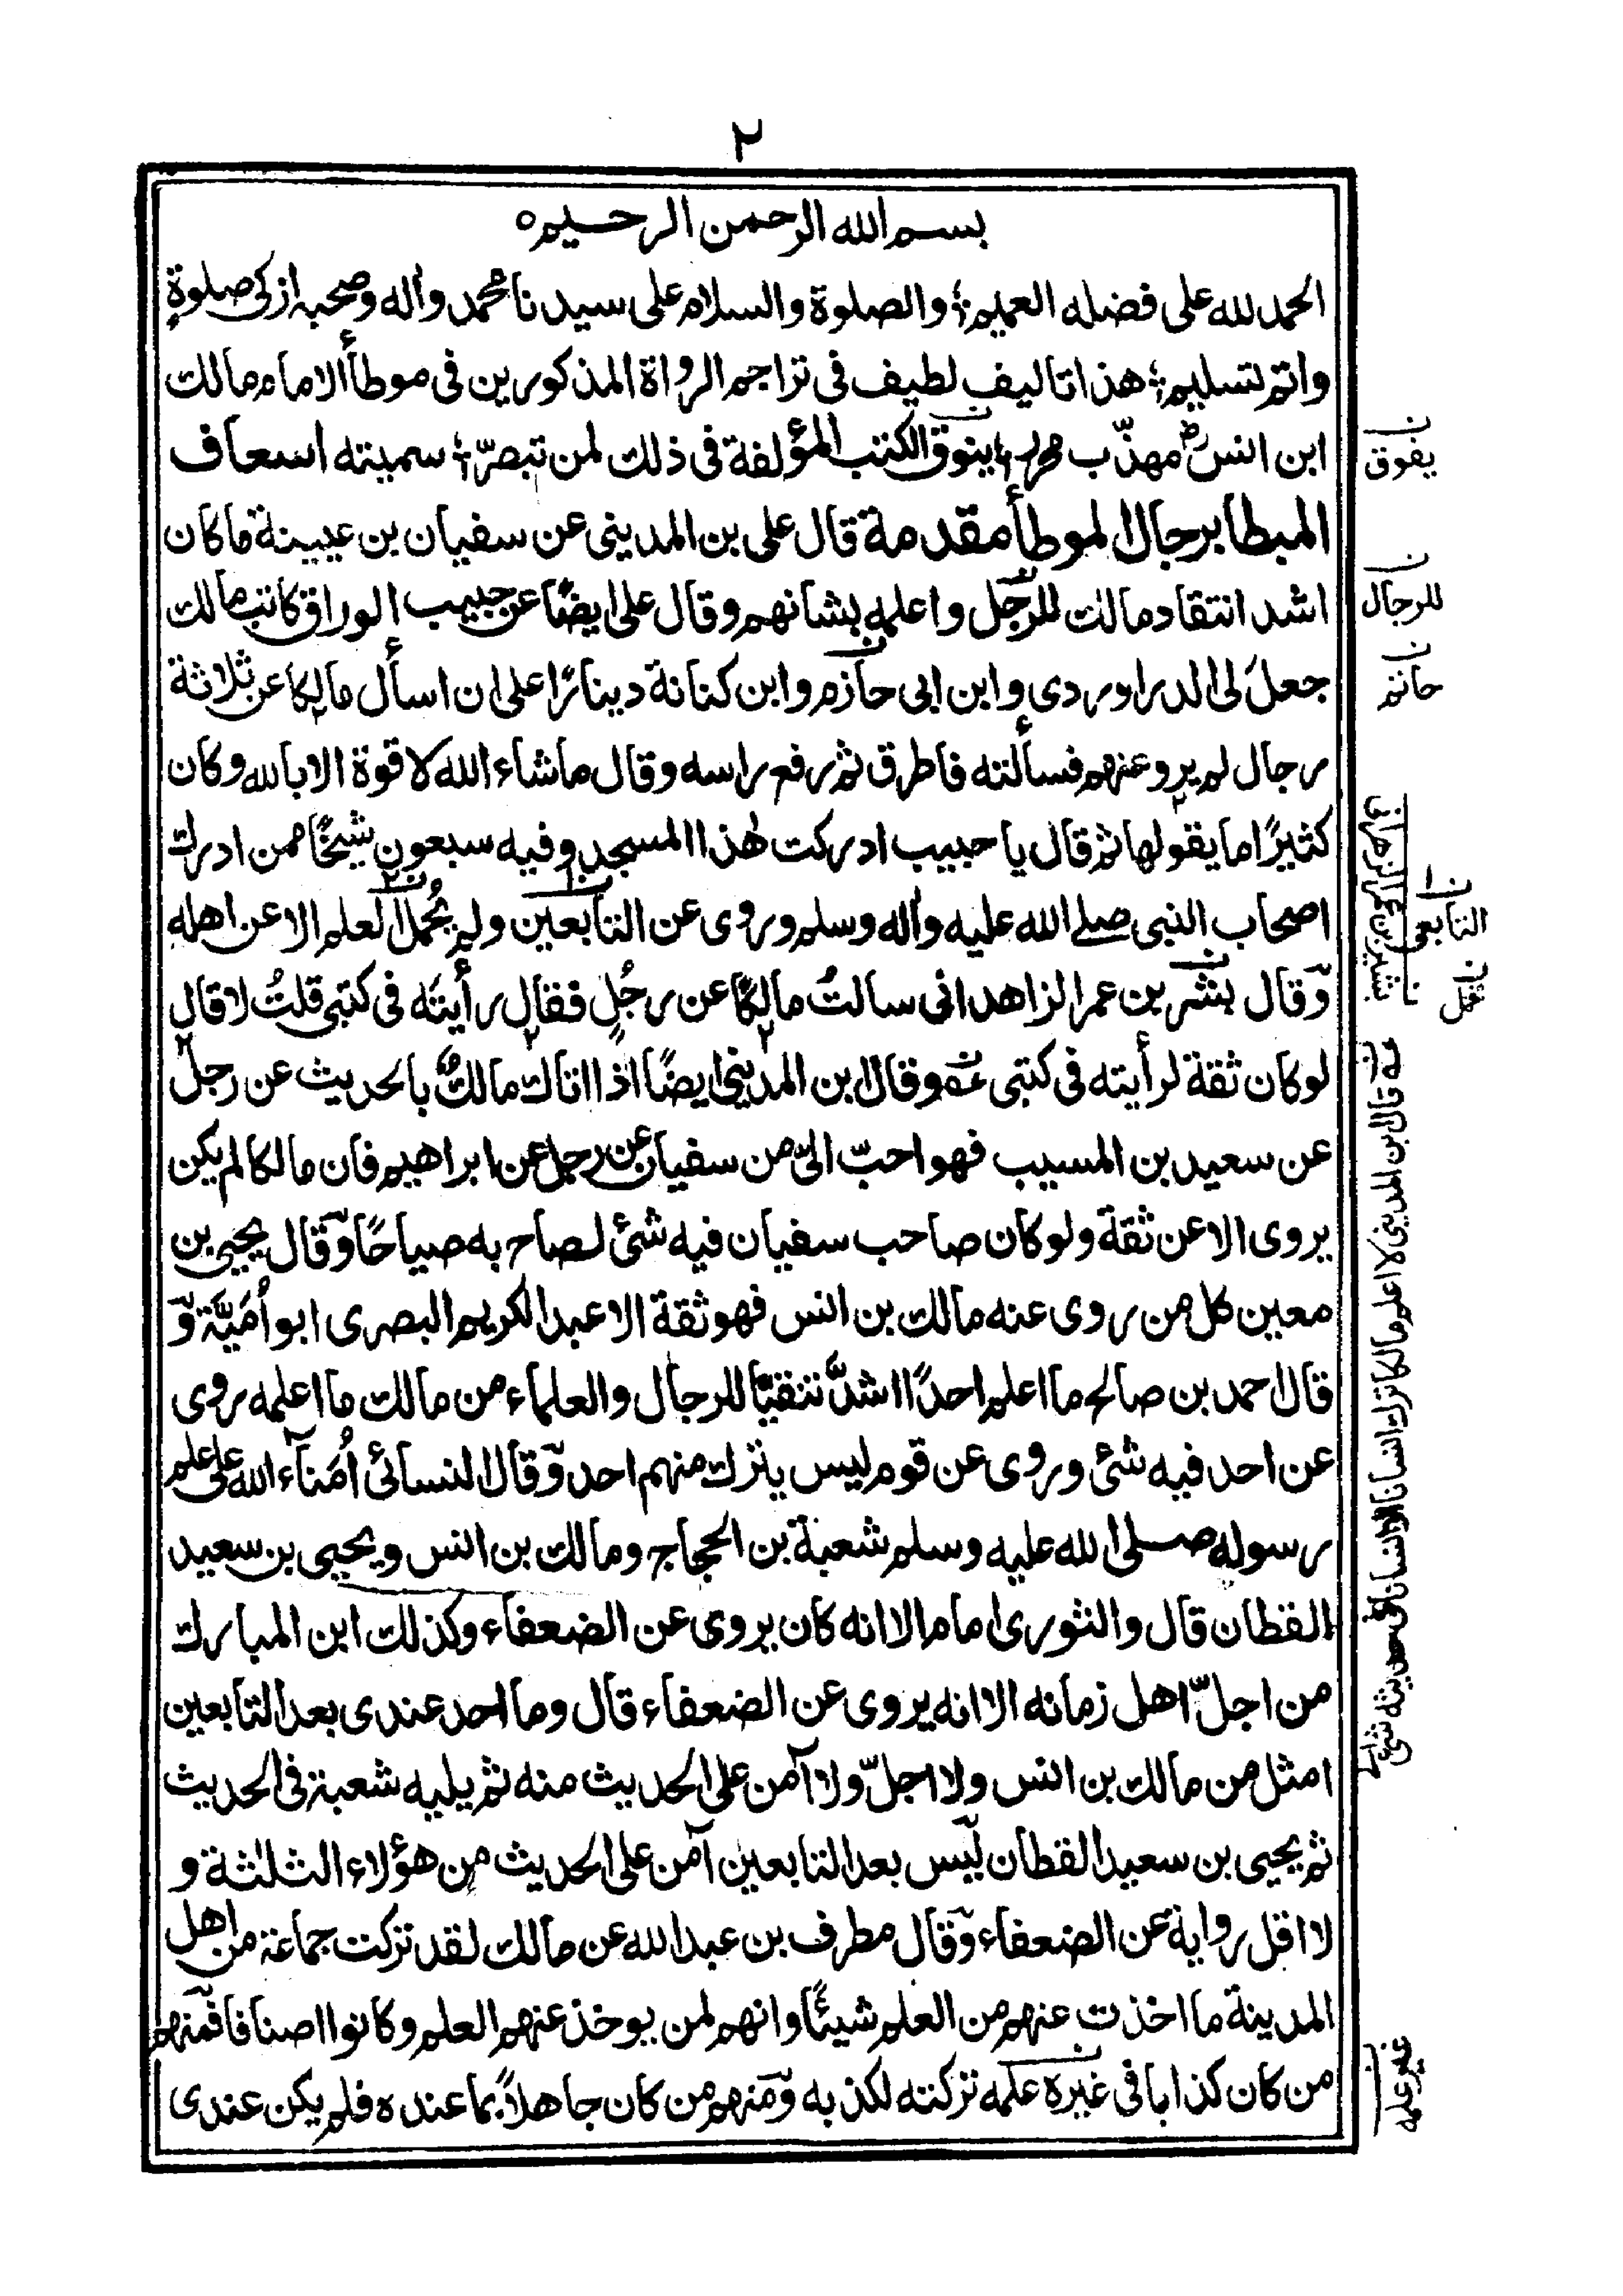 ٢
بسم الله الرحمن الرحيم ه
الحمد لله على فضله العميم؛ والصلوة والسلام على سيدنا محمد وأله وصحبه ازكى صلوةٍ
واتم تسليم؛ هذا تاليف لطيف فى تراجم الرواة المذكورين فى موطأ الامام مالك
ابن انسؒ مهذّب محرر؛ ينوق الكتب المؤلفة فى ذلك لمن تبصّر؛ سميته اسعاف
المبطا برجال الموطأ مقدمة قال على بن المدينى عن سفيان بن عيينة ما كان
اشد انتقاد مالك للرّجل واعلمه بشانهم وقال على ايضًا عن حبيب الوراق كاتب مالك
جعل لى الدراوردى وابن ابى حازم وابن كنانة دينارًا على ان اسأل مالكا عن ثلاثة
رجال لم يرو عنهم فسألته فاطرق ثم رفع راسه وقال ماشاء الله لا قوة الا بالله وكان
كثيرًا ما يقولها ثم قال يا حبيب ادركت هٰذا المسجد وفيه سبعون شيخًا ممن ادرك
اصحاب النبى صلے الله عليه وأله وسلم وروى عن التابعين ولم يُحمل العلم الا عن اهله
وّقال بشر بن عمر الزاهدانى سالتُ مالكًا عن رجُلٍ فقال رأيتَه فى كتبى قلتُ لا قال
لو كان ثقة لرأيته فى كتبى عه وقال ابن المدينى ايضًا اذا اتاك مالكٌ بالحديث عن رجل
عن سعيد بن المسيب فهو احبّ الىّ من سفيان عن رجل عن ابراهيم فان مالكا لم يكن
يروى الا عن ثقة ولو كان صاحب سفيان فيه شئ لصاح به صياحًا وّقال يحيى بن
معين كل من روى عنه مالك بن انس فهو ثقة الا عبد الكريم البصرى ابو اُمَيَّة وّ
قال احمد بن صالح ما اعلم احدًا اشدَّ تنقيًا للرجال والعلماء من مالك ما اعلمه روى
عن احد فيه شئ وروى عن قوم ليس يترك منهم احد وّقال النسائى اُمَنآء الله على علم
رسوله صلى الله عليه وسلم شعبة بن الحجاج ومالك بن انس ويحيى بن سعيد
القطان قال والثورى امام الا انه كان يروى عن الضعفاء وكذلك ابن المبارك
من اجلّ اهل زمانه الا انه يروى عن الضعفاء قال وما احد عندى بعد التابعين
امثل من مالك بن انس ولا اجلّ ولا آمن على الحديث منه ثم يليه شعبة فى الحديث
ثم يحيى بن سعيد القطان ليس بعد التابعين آمن على الحديث من هؤلاء الثلثة و
لا اقل رواية عن الضعفاء وّقال مطرف بن عبد الله عن مالك لقد تركت جماعة من اهل
المدينة ما اخذت عنهم من العلم شيئًا وانهم لمن يوخذ عنهم العلم وكانوا اصنافا فمنهم
من كان كذابا فى غيره علمه تركته لكذبه ومنهم من كان جاهلاً بما عنده فلم يكن عندى
ن يفوق
ن للرجال
ن حاتم
بشير بن عمر الزهرانى
ن التابعى
عه قال ابن المدينى لا اعلم مالكا ترك انسانا الا انسانا فى حديثه شئ
ن غير علمه